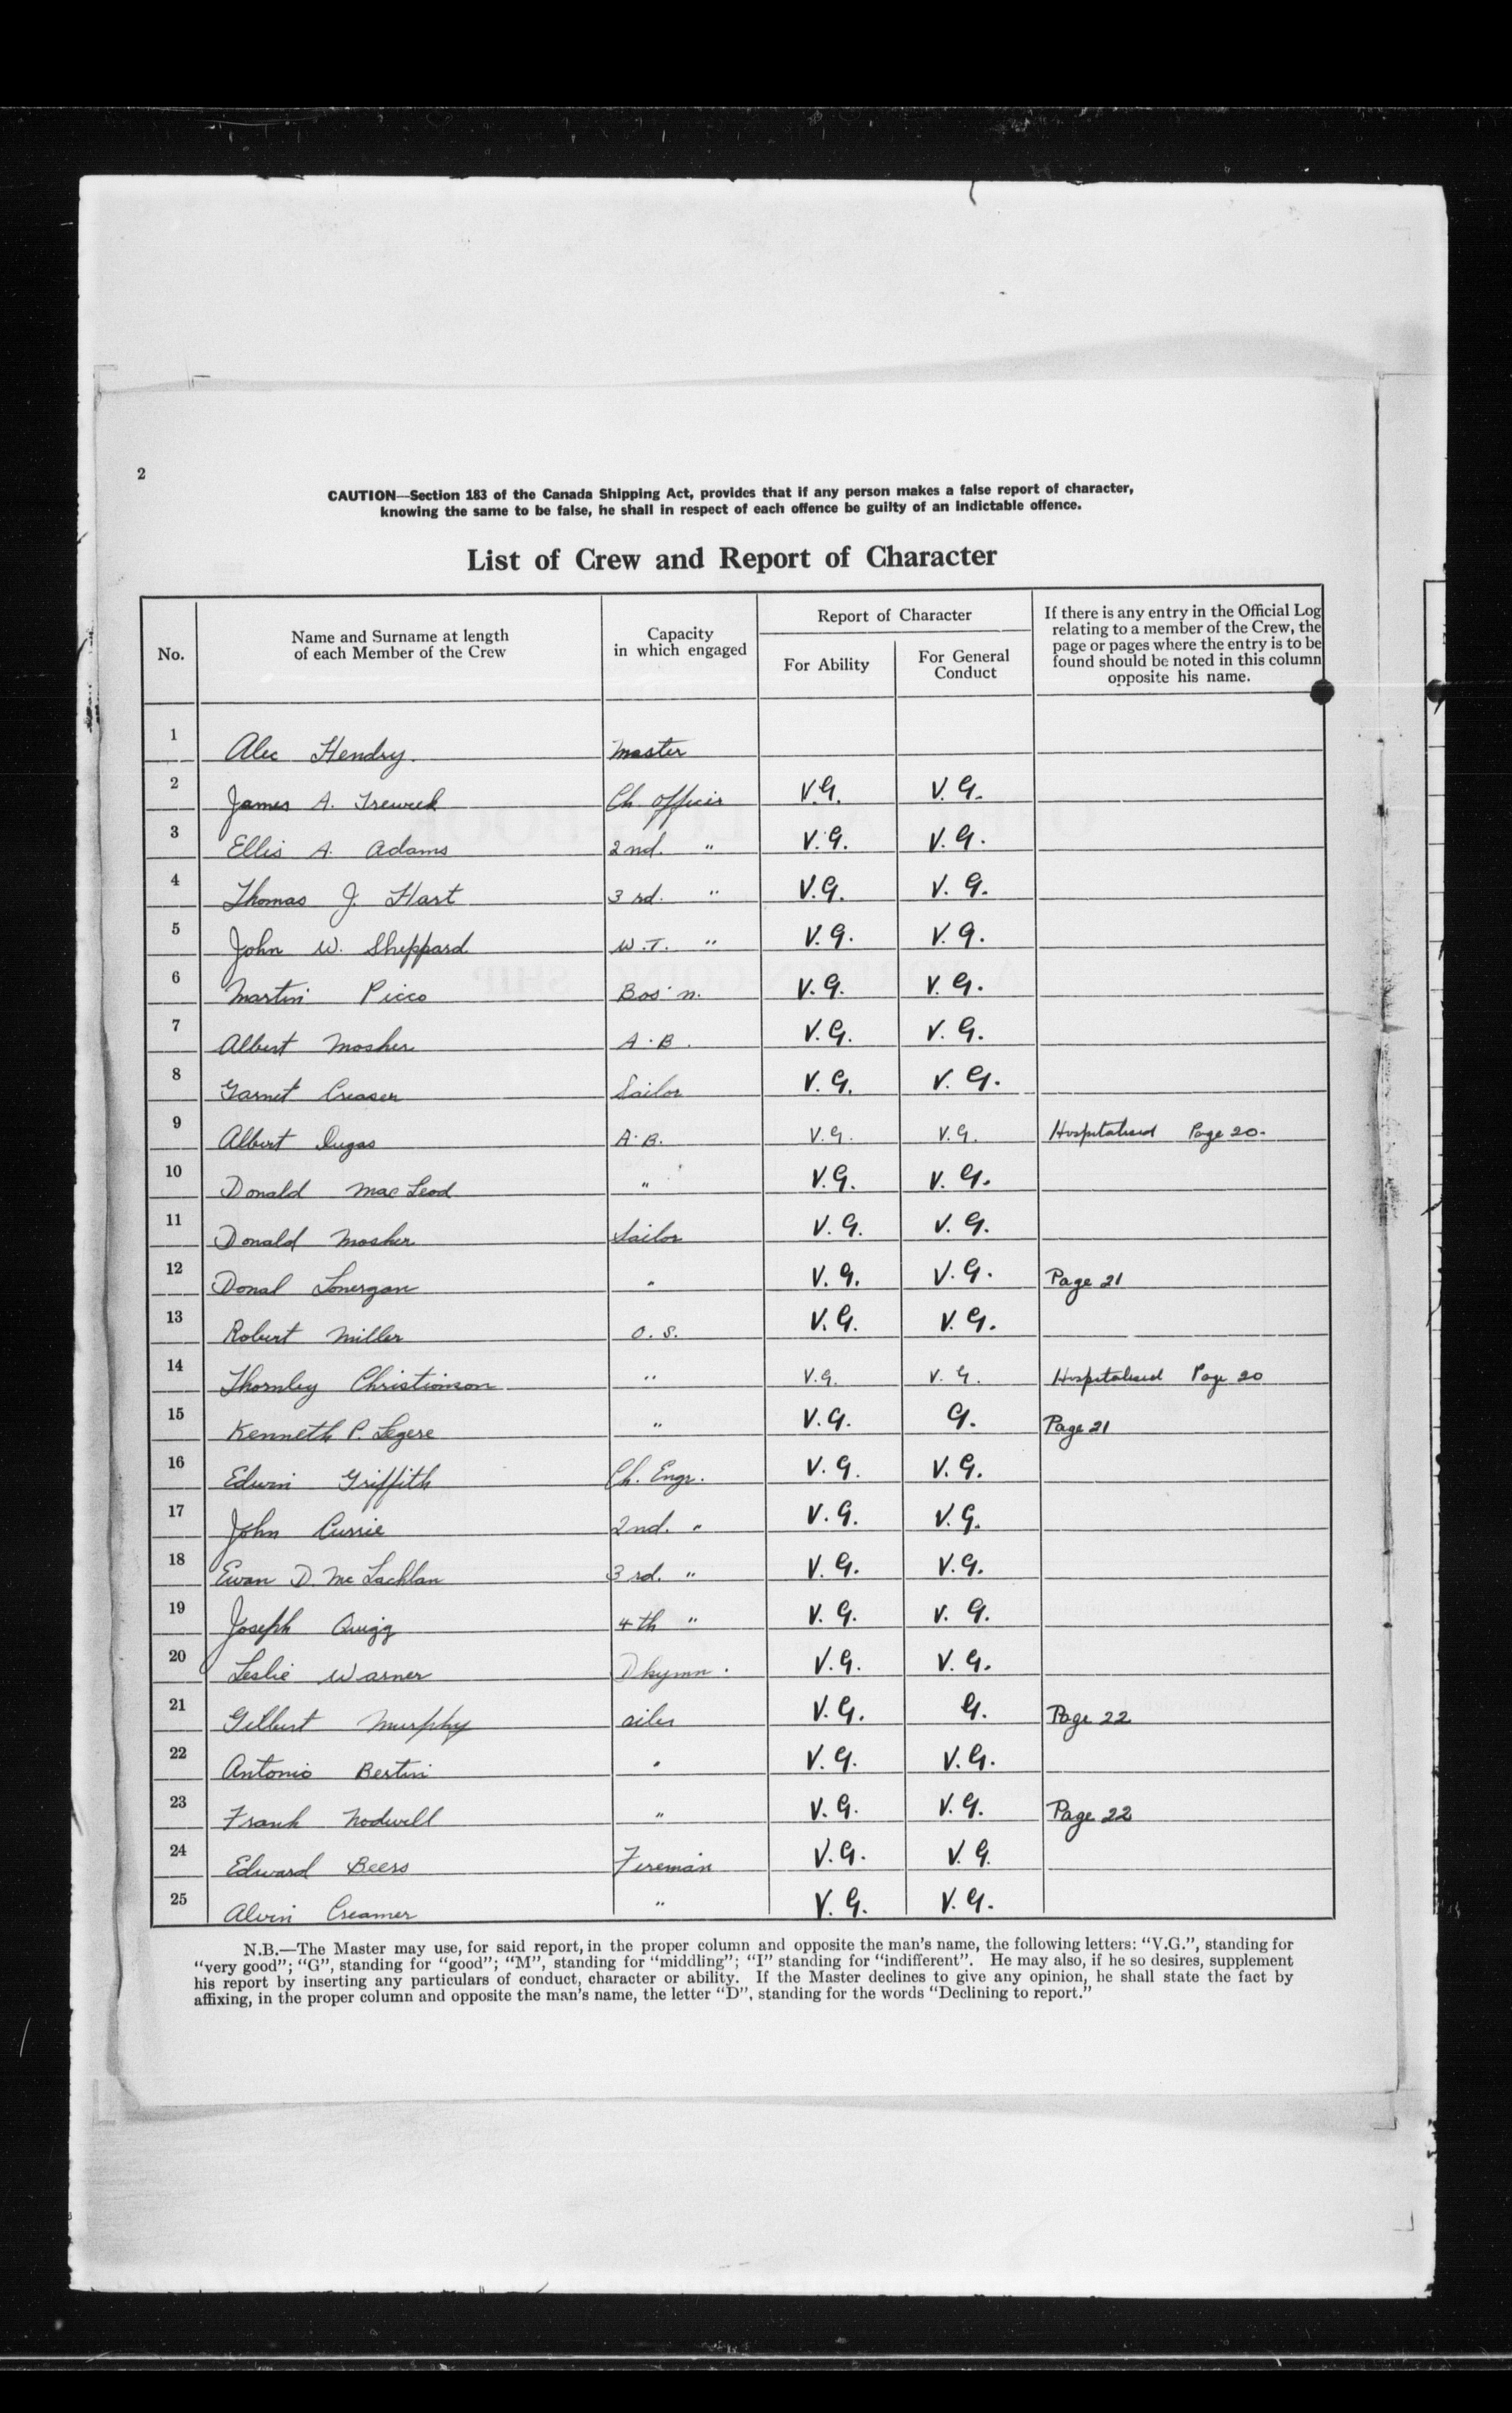 2
CAUTION—Section 183 of the Canada Shipping Act, provides that if any person makes a false report of character,
knowing the same to be false, he shall in respect of each offence be guilty of an indictable offence.
List of Crew and Report of Character
No. Name and Surname at length of each Member of the Crew Capacity in which engaged Report of Character For Ability For General Conduct If there is any entry in the Official Log relating to a member of the Crew, the page or pages where the entry is to be found should be noted in this column opposite his name.
1 Alec Hendry. Master
2 James A. Treweek Ch. Officer V.G. V.G.
3 Ellis A. Adams 2nd. " V.G. V.G.
4 Thomas J. Hart 3rd. " V.G. V.G.
5 John W. Sheppard W.T. " V.G. V.G.
6 Martin Picco Bos'n. V.G. V.G.
7 Albert Mosher A.B. V.G. V.G.
8 Garnet Creaser Sailor V.G. V.G.
9 Albert Dugas A.B. V.G. V.G. Hospitalised Page 20.
10 Donald MacLeod " V.G. V.G.
11 Donald Mosher Sailor V.G. V.G.
12 Donal Lonergan " V.G. V.G. Page 21
13 Robert Miller O.S. V.G. V.G.
14 Thornley Christianson " V.G. V.G. Hospitalised Page 20
15 Kenneth P. Legere " V.G. G. Page 21
16 Edwin Griffith Ch. Engr. V.G. V.G.
17 John Currie 2nd. " V.G. V.G.
18 Ewan D. McLachlan 3rd. " V.G. V.G.
19 Joseph Quigg 4th " V.G. V.G.
20 Leslie Warner Dkymn. V.G. V.G.
21 Gilbert Murphy oiler V.G. G. Page 22
22 Antonio Bertin " V.G. V.G.
23 Frank Nodwell " V.G. V.G. Page 22
24 Edward Beers Fireman V.G. V.G.
25 Alvin Creamer " V.G. V.G.
N.B.—The Master may use, for said report, in the proper column and opposite the man's name, the following letters: "V.G.", standing for
"very good"; "G", standing for "good"; "M", standing for "middling"; "I" standing for "indifferent". He may also, if he so desires, supplement
his report by inserting any particulars of conduct, character or ability. If the Master declines to give any opinion, he shall state the fact by
affixing, in the proper column and opposite the man's name, the letter "D", standing for the words "Declining to report."